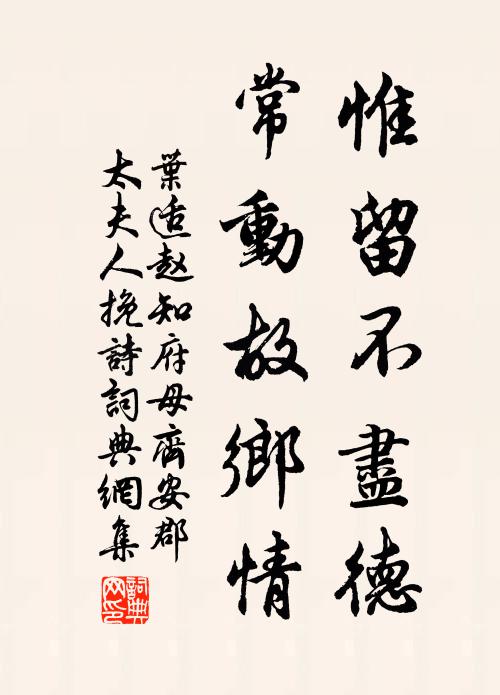 惟留不盡德
常動故鄉情
葉适赵知府母齊安郡
太夫人挽詩詞典網集
詞典网印